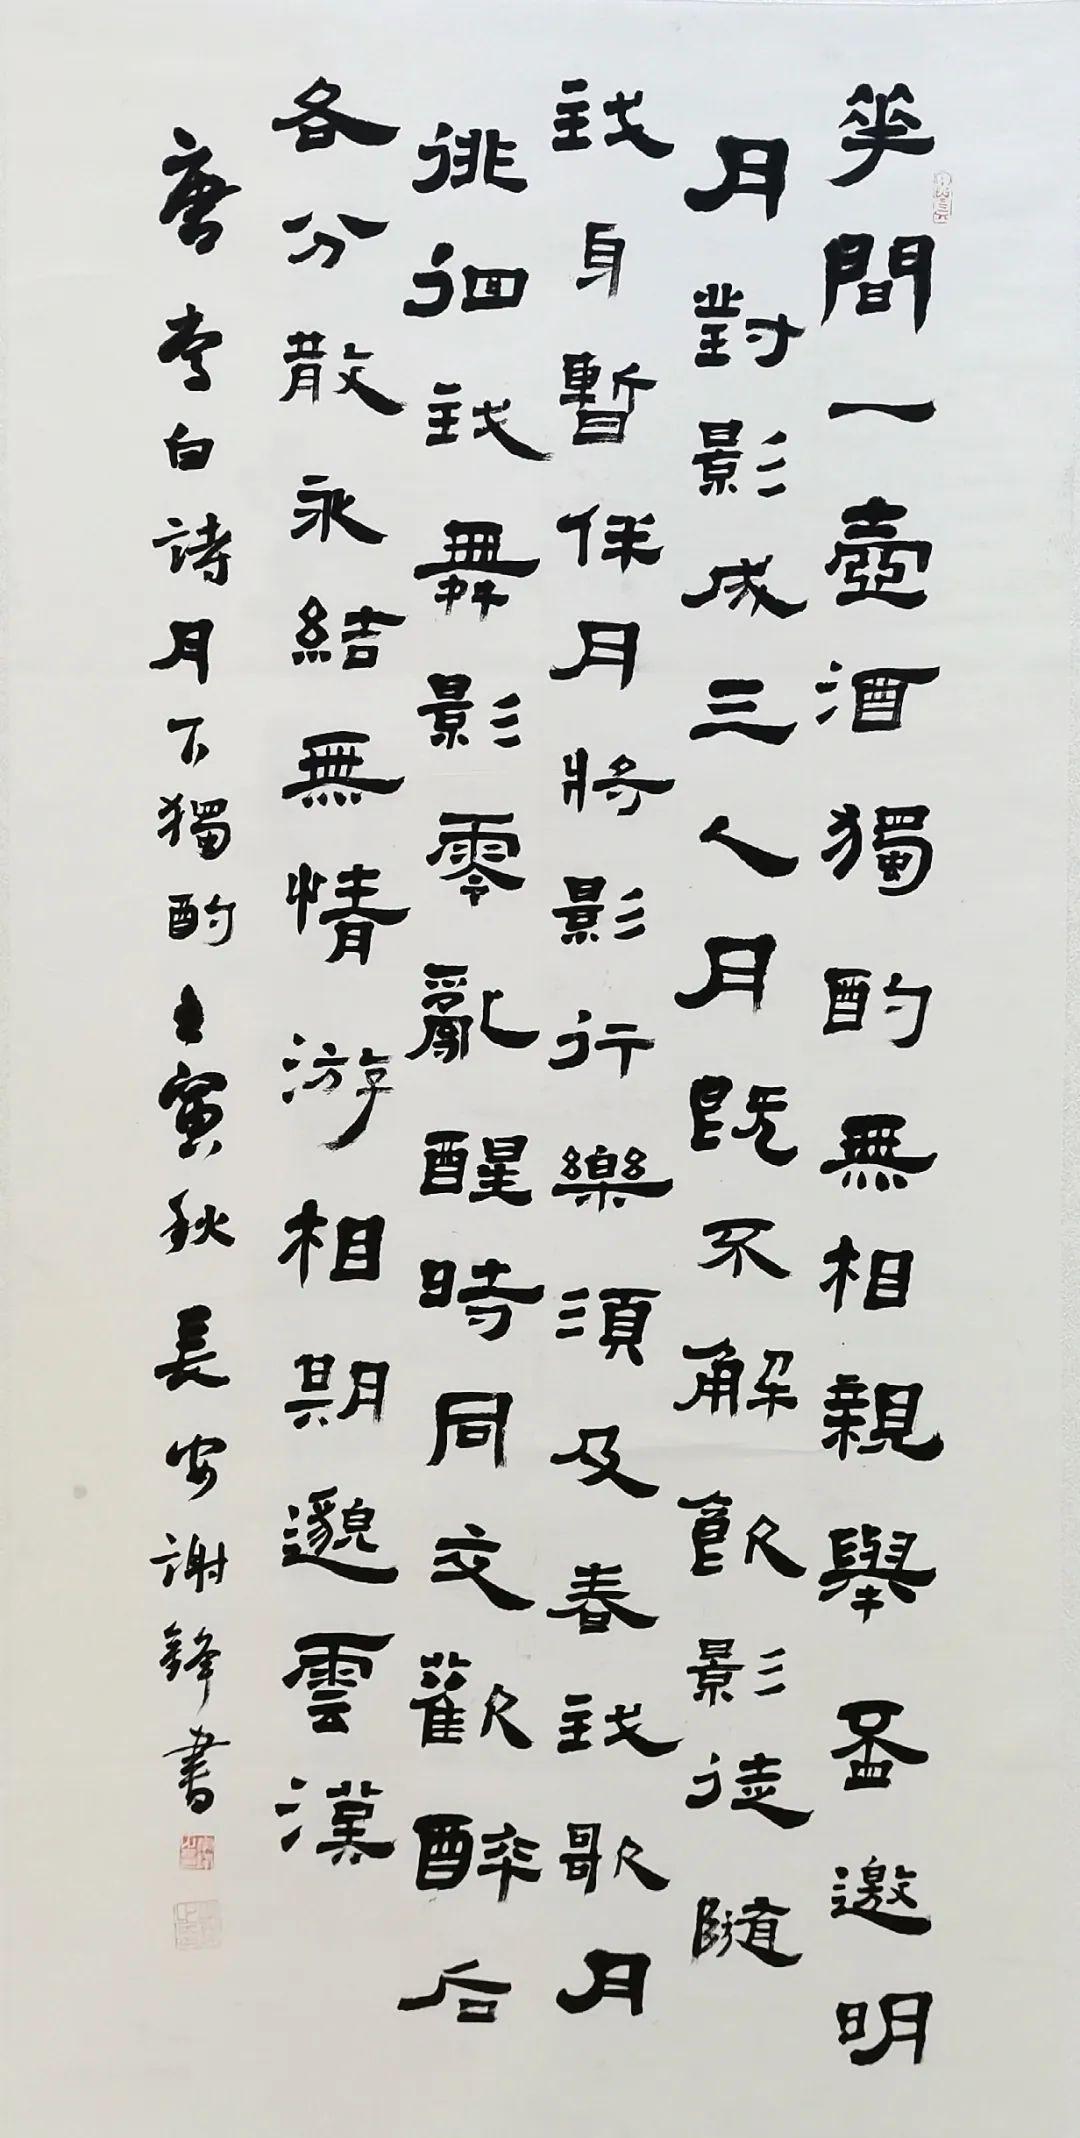 花間一壺酒獨酌無相親舉杯邀明
月對影成三人月既不解飲影徒隨
我身暫伴月將影行樂須及春我歌月
徘徊我舞影零亂醒時同交歡醉后
各分散永結無情游相期邈雲漢
唐李白詩月下獨酌壬寅秋長安謝鋒書